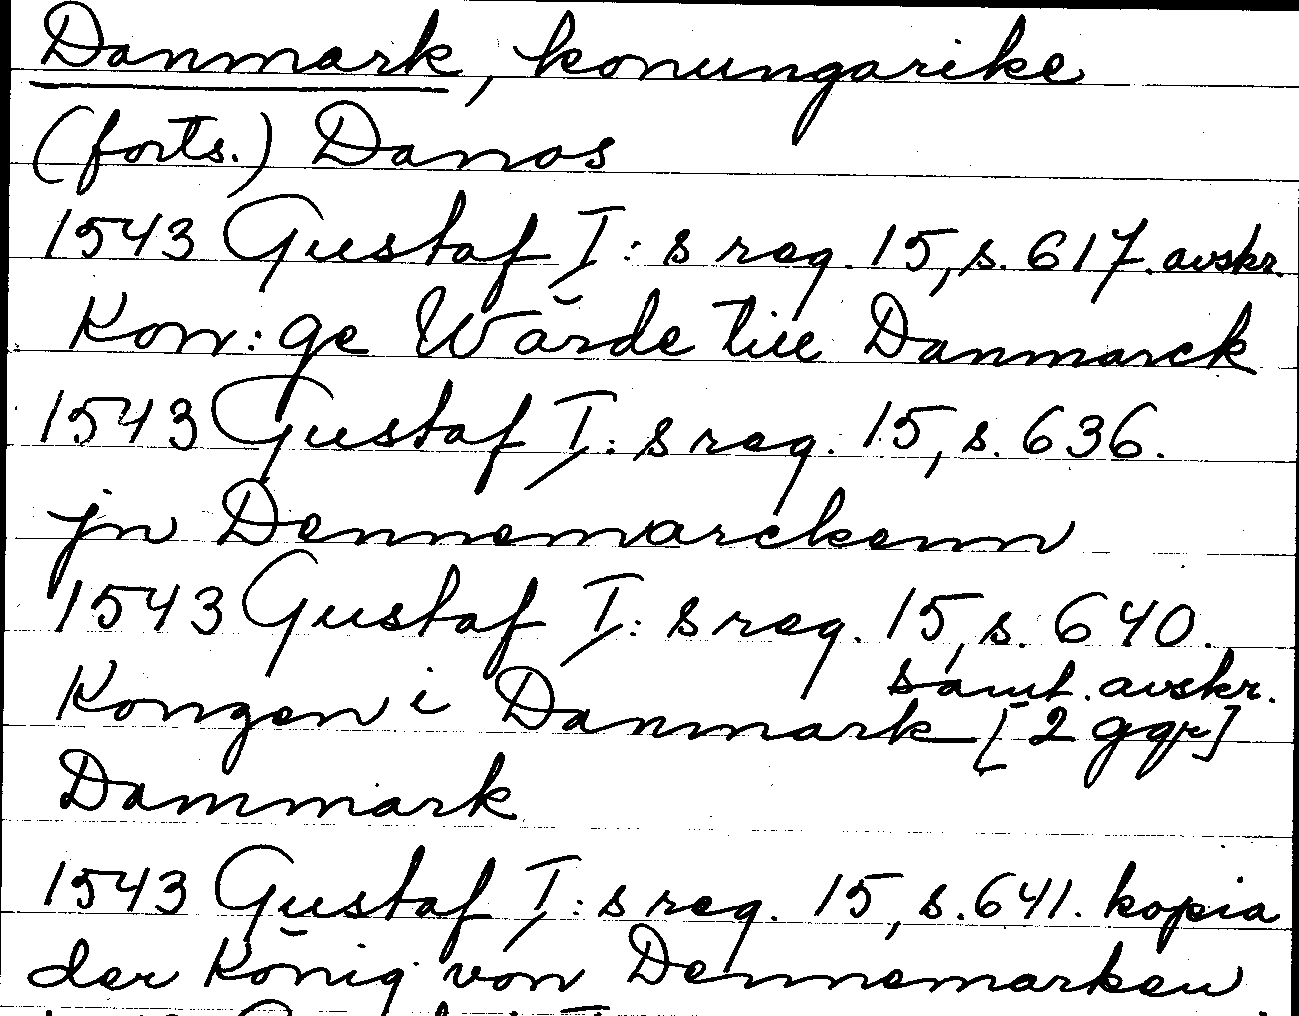 Danmark, konungarike
(forts.) Danos
1543 Gustaf I:s reg. 15, s. 617. avskr.
Kon:ge Wärde till Danmarck
1543 Gustaf I:s reg. 15, s. 636.
jn Dennemarckenn
1543 Gustaf I:s reg. 15, s. 640.
samt. avskr.
Kongen i Danmark [2 ggr]
Dammark
1543 Gustaf I:s reg. 15, s. 641. kopia
der König von Dennemarken